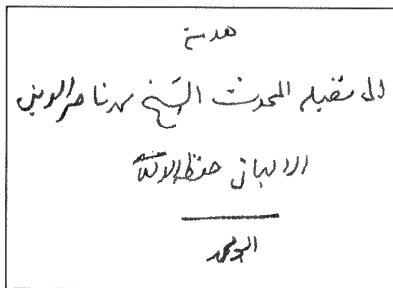 هدية
الى فضيلة المحدث الشيخ محمد ناصر الدين
الالباني حفظه الله